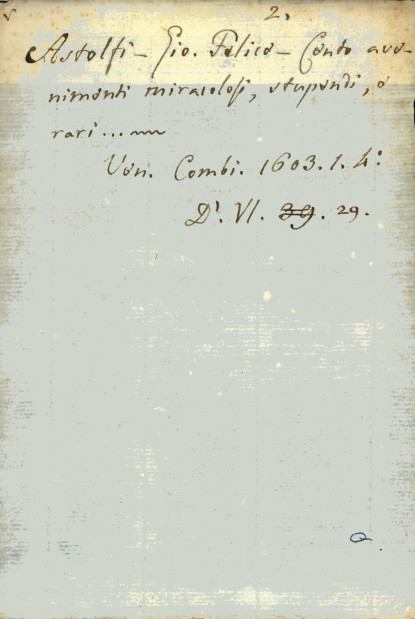 2.
Astolfi - Gio. Felice - Cento ave-
nimenti miracolosi, stupendi, e
rari...
Ven. Combi. 1603. 1. 4:
D'. VI. 39. 29.